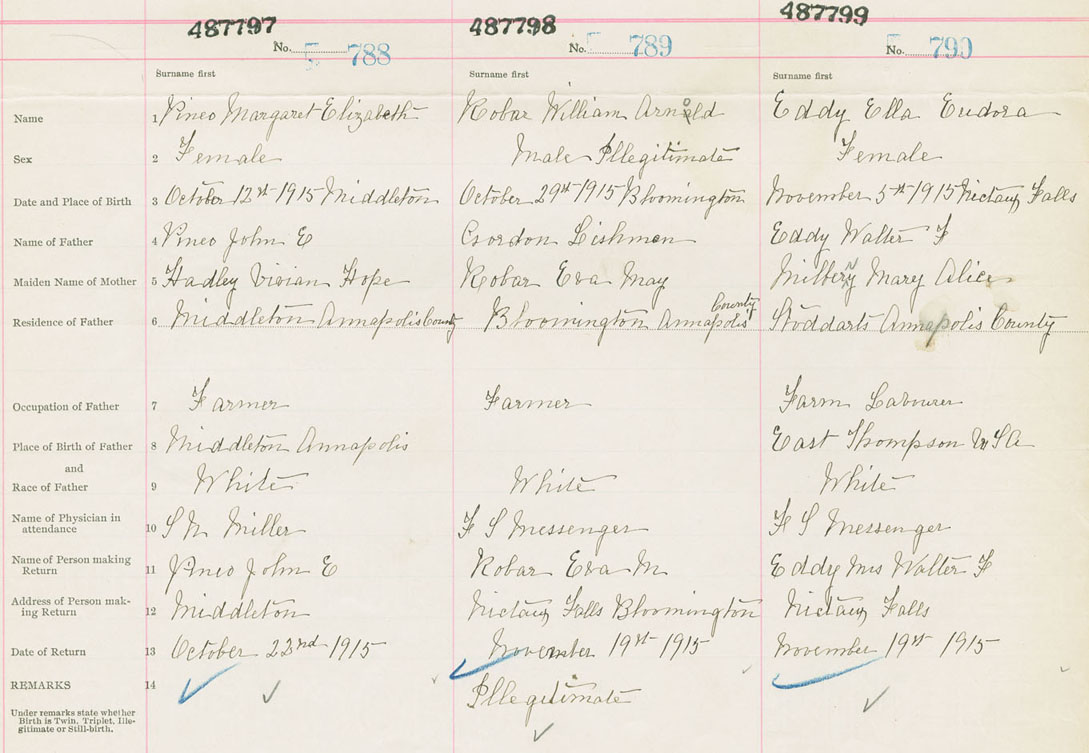 487797 487798 487799
No. 5 788 No. 5 789 No. 5 790
Surname first Surname first Surname first
Name 1 Pineo Margaret Elizabeth Robar William Arnold Eddy Ella Eudora
Sex 2 Female Male Illegitimate Female
Date and Place of Birth 3 October 12st 1915 Middleton October 29st 1915 Bloomington November 5th 1915 Nictaux Falls
Name of Father 4 Pineo John E Gordon Lishman Eddy Walter F
Maiden Name of Mother 5 Hadley Vivian Hope Robar Eva May Milbery Mary Alice
Residence of Father 6 Middleton Annapolis County Bloomington Annapolis County Stoddarts Annapolis County
Occupation of Father 7 Farmer Farmer Farm Labourer
Place of Birth of Father 8 Middleton Annapolis East Thompson USA
and
Race of Father 9 White White White
Name of Physician in
attendance 10 S N Miller F S Messenger F S Messenger
Name of Person making
Return 11 Pineo John E Robar Eva M Eddy Mrs Walter F
Address of Person mak-
ing Return 12 Middleton Nictaux Falls Bloomington Nictaux Falls
Date of Return 13 October 22nd 1915 November 19st 1915 November 19st 1915
REMARKS 14 Illegitimate
Under remarks state whether
Birth is Twin, Triplet, Ille-
gitimate or Still-birth.